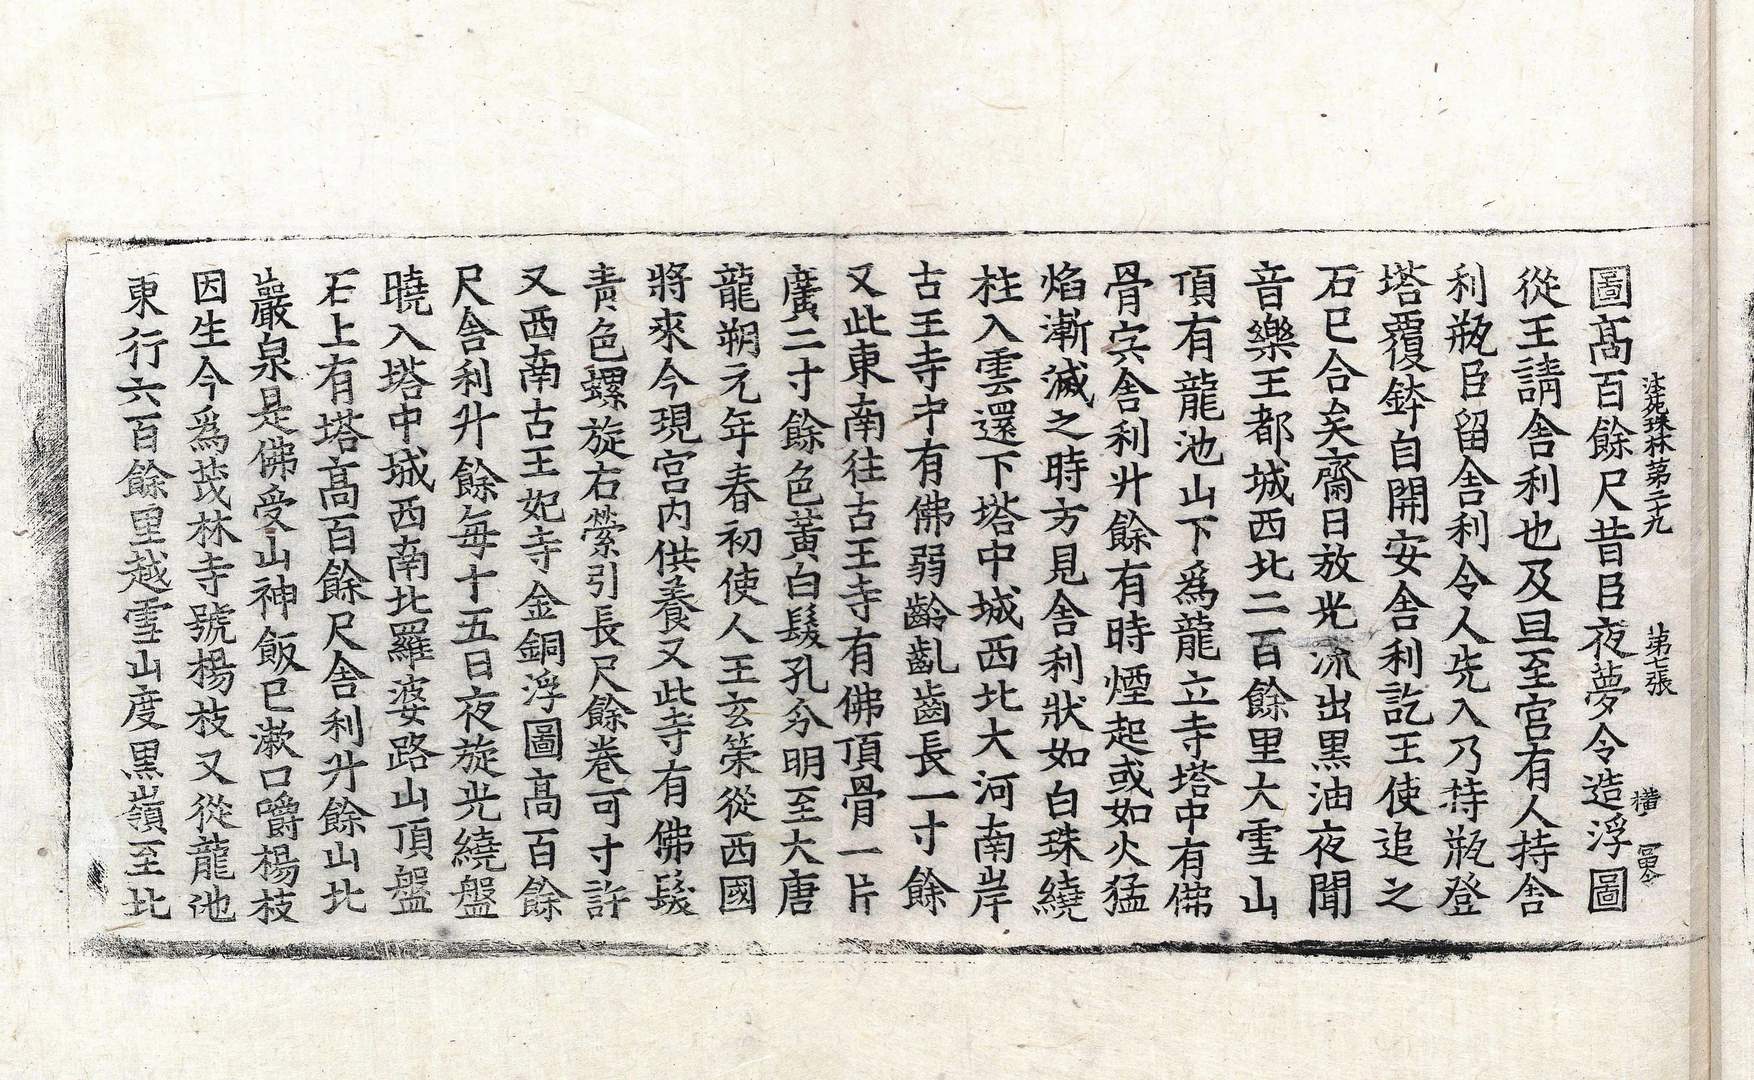 法苑珠林第二十九 第七張 橫
圖高百餘尺昔臣夜夢令造浮圖
從王請舍利也及旦至宮有人持舍
利瓶臣留舍利令人先入乃持瓶登
塔覆鉢自開安舍利訖王使追之
石已合矣齋日放光流出黑油夜聞
音樂王都城西北二百餘里大雪山
頂有龍池山下爲龍立寺塔中有佛
骨㝎舍利升餘有時煙起或如火猛
焰漸滅之時方見舍利狀如白珠繞
柱入雲還下塔中城西北大河南岸
古王寺中有佛弱齡齓齒長一寸餘
又此東南往古王寺有佛頂骨一片
廣二寸餘色黃白髮孔分明至大唐
龍朔元年春初使人王玄策從西國
將來今現宮內供養又此寺有佛髮
青色螺旋右縈引長尺餘卷可寸許
又西南古王妃寺金銅浮圖高百餘
尺舍利升餘每十五日夜旋光繞盤
曉入塔中城西南北羅婆路山頂盤
石上有塔高百餘尺舍利升餘山北
巖泉是佛受山神飯已漱口嚼楊枝
因生今爲茂林寺號楊枝又從龍池
東行六百餘里越雪山度黑嶺至北